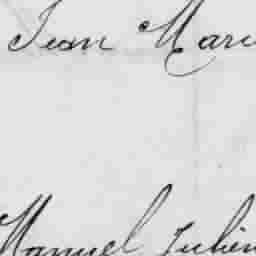 Jean Mari
Manuel Julien